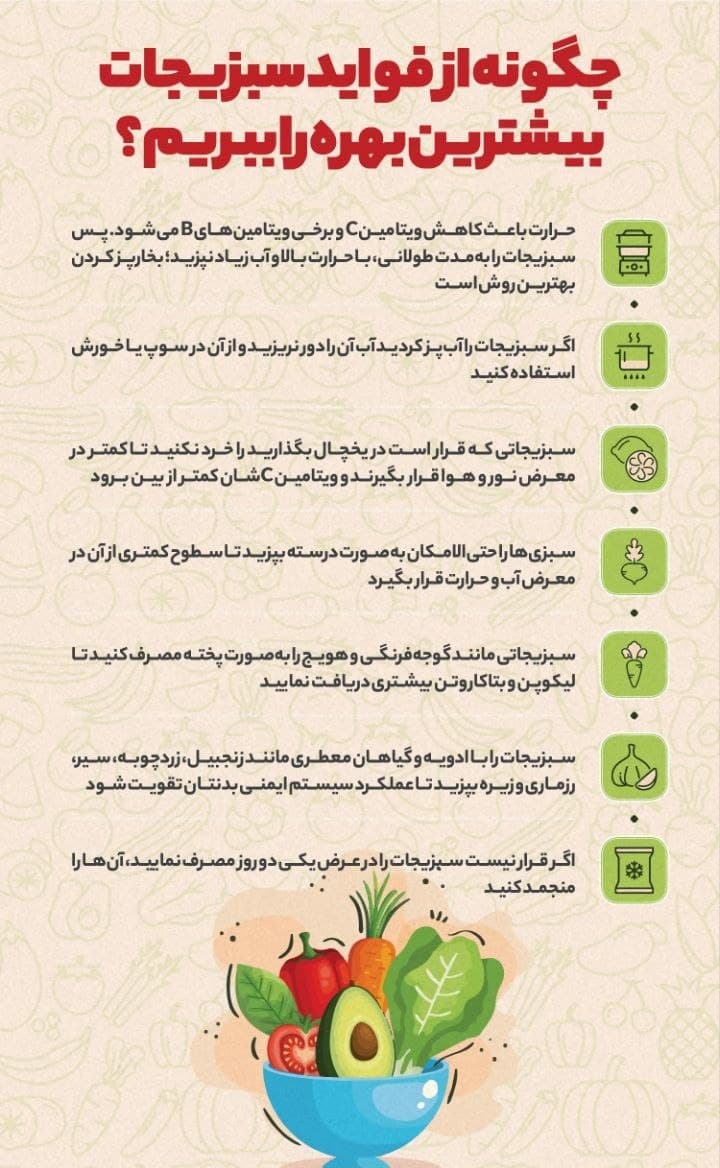 چگونه از فواید سبزیجات
بیشترین بهره را ببریم؟
حرارت باعث کاهش ویتامین C و برخی ویتامین‌های B می‌شود. پس
سبزیجات را به مدت طولانی، با حرارت بالا و آب زیاد نپزید؛ بخارپز کردن
بهترین روش است
اگر سبزیجات را آب‌پز کردید آب آن را دور نریزید و از آن در سوپ یا خورش
استفاده کنید
سبزیجاتی که قرار است در یخچال بگذارید را خرد نکنید تا کمتر در
معرض نور و هوا قرار بگیرند و ویتامین Cشان کمتر از بین برود
سبزی‌ها را حتی‌الامکان به‌صورت درسته بپزید تا سطوح کمتری از آن در
معرض آب و حرارت قرار بگیرد
سبزیجاتی مانند گوجه‌فرنگی و هویج را به‌صورت پخته مصرف کنید تا
لیکوپن و بتاکاروتن بیشتری دریافت نمایید
سبزیجات را با ادویه و گیاهان معطری مانند زنجبیل، زردچوبه، سیر،
رزماری و زیره بپزید تا عملکرد سیستم ایمنی بدنتان تقویت شود
اگر قرار نیست سبزیجات را در عرض یکی دو روز مصرف نمایید، آن‌ها را
منجمد کنید